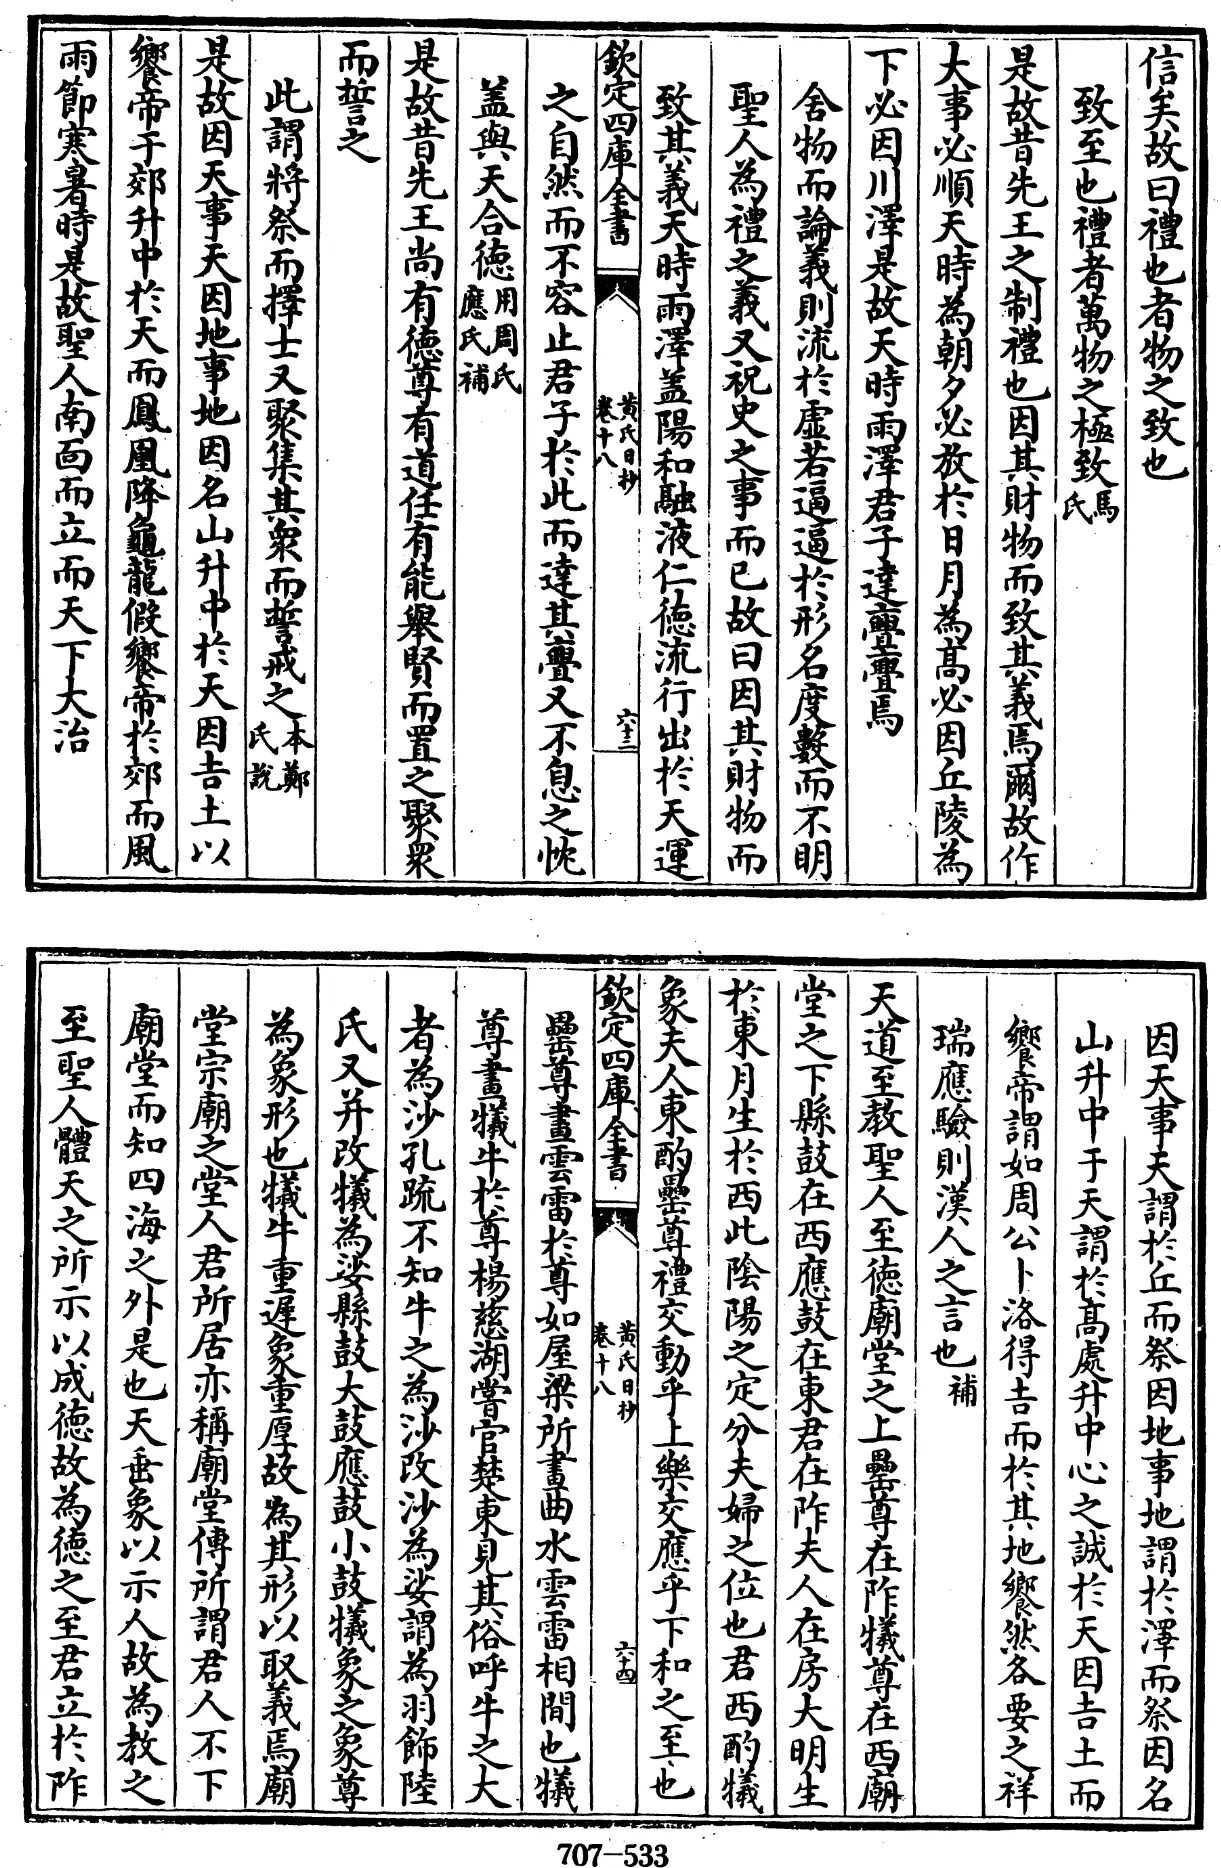 信矣故曰禮也者物之致也
致至也禮者萬物之極致馬氏
是故昔先王之制禮也因其財物而致其義焉爾故作
大事必順天時為朝夕必放於日月為髙必因丘陵為
下必因川澤是故天時雨澤君子達亹亹焉
舍物而論義則流於虛若逼逼於形名度數而不明
聖人為禮之義又祝史之事而已故曰因其財物而
致其義天時雨澤盖陽和融液仁徳流行出於天運
欽定四庫全書
黃氏日抄
卷十八
六十三
之自然而不容止君子於此而達其亹又不息之忱
盖與天合徳用周氏應氏補
是故昔先王尚有徳尊有道任有能舉賢而置之聚衆
而誓之
此謂將祭而擇士又聚集其衆而誓戒之本鄭氏說
是故因天事天因地事地因名山升中於天因吉土以
饗帝于郊升中於天而鳳凰降龜龍假饗帝於郊而風
雨節寒暑時是故聖人南面而立而天下大治
因天事天謂於丘而祭因地事地謂於澤而祭因名
山升中于天謂於髙處升中心之誠於天因吉土而
饗帝謂如周公卜洛得吉而於其地饗然各要之祥
瑞應驗則漢人之言也補
天道至教聖人至徳廟堂之上罍尊在阼犧尊在西廟
堂之下縣鼓在西應鼓在東君在阼夫人在房大明生
於東月生於西此陰陽之定分夫婦之位也君西酌犧
象夫人東酌罍尊禮交動乎上樂交應乎下和之至也
欽定四庫全書
黃氏日抄
卷十八
六十四
罍尊畫雲雷於尊如屋梁所畫曲水雲雷相間也犧
尊畫犧牛於尊楊慈湖嘗官楚東見其俗呼牛之大
者為沙孔疏不知牛之為沙改沙為娑謂為羽飾陸
氏又并改犧為娑縣鼓大鼓應鼓小鼓犧象之象尊
為象形也犧牛重遲象重厚故為其形以取義焉廟
堂宗廟之堂人君所居亦稱廟堂傳所謂君人不下
廟堂而知四海之外是也天垂象以示人故為教之
至聖人體天之所示以成徳故為徳之至君立於阼
707-533